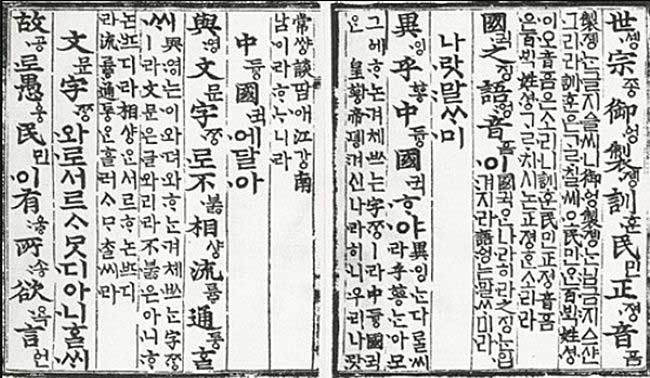 世솅宗조ᇰ御ᅌᅥᆼ製졩訓훈民민正져ᇰ音ᅙᅳᆷ
製졩는글지ᅀᅳᆯ씨니御ᅌᅥᆼ製졩는님금지ᅀᅳ샨
그리라訓훈은ᄀᆞᄅᆞ칠씨오民민ᄋᆞᆫ百ᄇᆡᆨ姓셔ᇰ
이오音ᅙᅳᆷ은소리니訓훈民민正져ᇰ音ᅙᅳᆷ
은百ᄇᆡᆨ姓셔ᇰᄀᆞᄅᆞ치시논正져ᇰᄒᆞᆫ소리라
國귁之징語ᅌᅥᆼ音ᅙᅳᆷ이 國귁ᄋᆞᆫ나라히라之징ᄂᆞᆫ입
겨지라語ᅌᅥᆼ는말ᄊᆞ미라
나랏말ᄊᆞ미
異잉乎ᅘᅩᆼ中듀ᇰ國귁ᄒᆞ야 異잉ᄂᆞᆫ다ᄅᆞᆯ씨
라乎ᅘᅩᆼᄂᆞᆫ아모
그ᅌᅦᄒᆞ논겨체ᄡᅳ는字ᄍᆞᆼㅣ라中듀ᇰ國귁
ᄋᆞᆫ皇ᅘᅪᇰ帝뎽겨신나라히니우리나랏
常쌰ᇰ談땀애江가ᇰ南
남이라ᄒᆞᄂᆞ니라
中듀ᇰ國귁에달아
與영文문字ᄍᆞᆼ로不부ᇙ相샤ᇰ流류ᇢ通토ᇰᄒᆞᆯ
ᄊᆡ 與영는이와뎌와ᄒᆞ는겨체ᄡᅳ는字ᄍᆞᆼ
ㅣ라文문은글와리라不부ᇙ은아니ᄒᆞ
논ᄠᅳ디라相샤ᇰᄋᆞᆫ서르ᄒᆞ논ᄠᅳ디
라流류ᇢ通토ᇰᄋᆞᆫ흘러ᄉᆞᄆᆞᄎᆞᆯ씨라
文문字ᄍᆞᆼ와로서르ᄉᆞᄆᆞᆺ디아니ᄒᆞᆯᄊᆡ
故공로愚ᅌᅮᆼ民민이有ᅌᅮᇢ所송欲욕言ᅌᅥᆫ